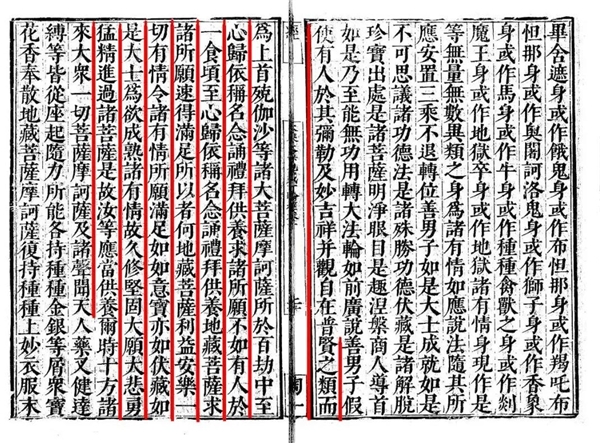 畢舍遮身或作餓鬼身或作布怛那身或作羯吒布
怛那身或作粤闍訶洛鬼身或作師子身或作香象
身或作馬身或作牛身或作種種禽獸之身或作剡
魔王身或作地獄卒身或作地獄諸有情身現作是
等無量無數異類之身爲諸有情如應說法隨其所
應安置三乘不退轉位善男子如是大士成就如是
不可思議諸功德法是諸殊勝功德伏藏是諸解脫
珍寶出處是諸菩薩明淨眼目是趣涅槃商人導首
如是乃至能無功用轉大法輪如前廣說善男子假
使有人於其彌勒及妙吉祥并觀自在普賢之類而
爲上首殑伽沙等諸大菩薩摩訶薩所於百劫中至
心歸依稱名念誦禮拜供養求諸所願不如有人於
一食頃至心歸依稱名念誦禮拜供養地藏菩薩求
諸所願速得滿足所以者何地藏菩薩利益安樂一
切有情令諸有情所願滿足如如意寶亦如伏藏如
是大士爲欲成熟諸有情故久修堅固大願大悲勇
猛精進過諸菩薩是故汝等應當供養爾時十方諸
來大衆一切菩薩摩訶薩及諸聲聞天人藥叉健達
縛等皆從座起隨力所能各持種種金銀等屑衆寶
花香奉散地藏菩薩摩訶薩復持種種上妙衣服末